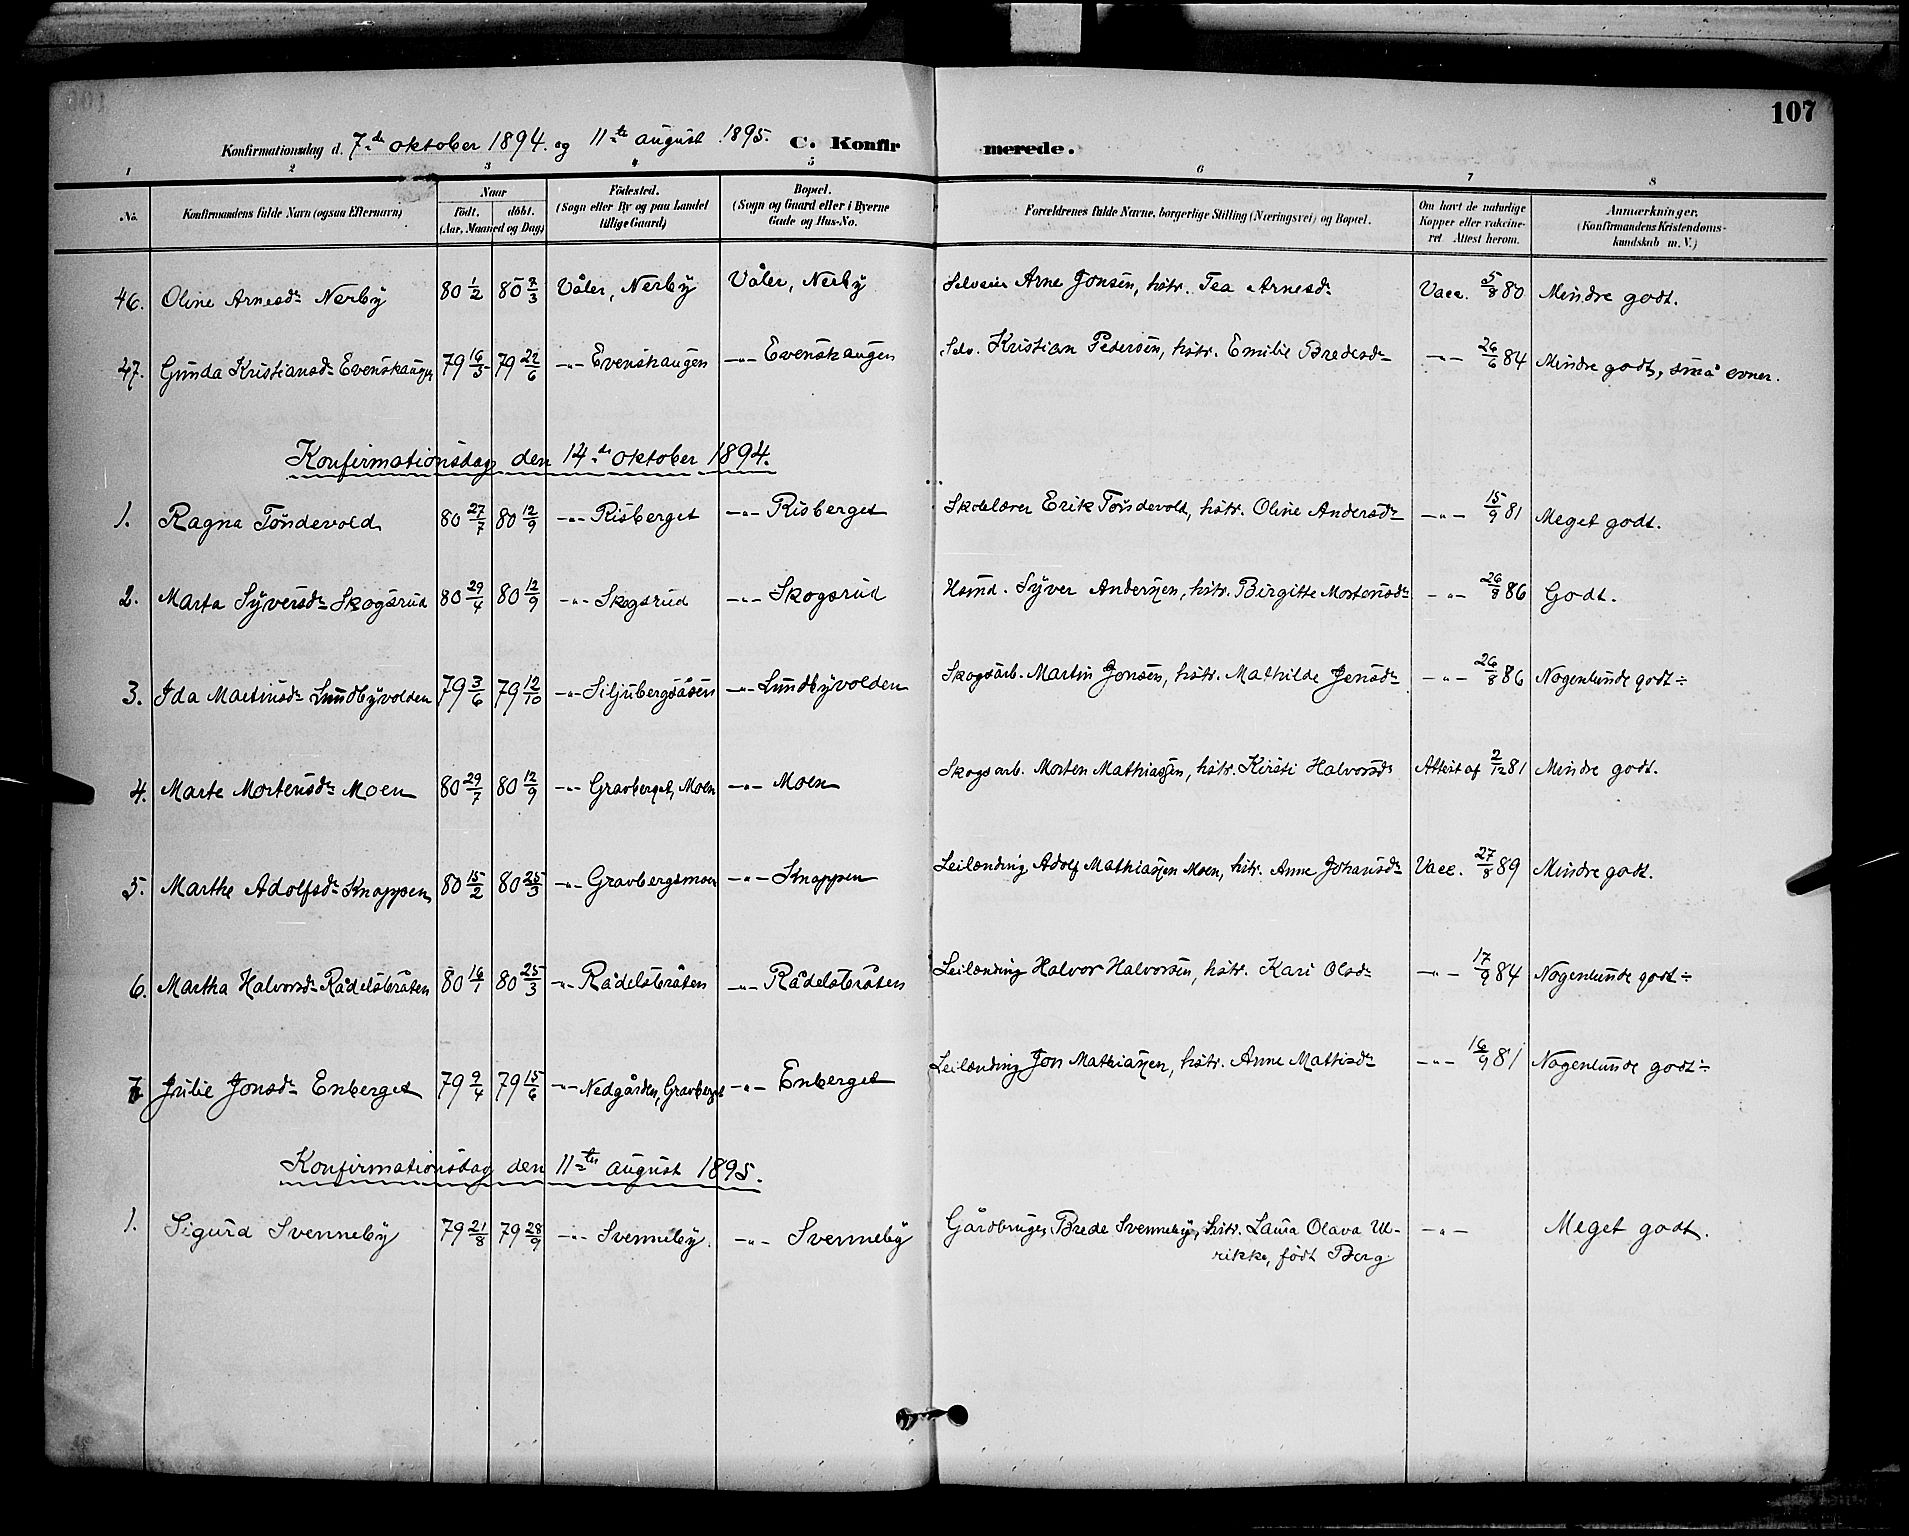 107
Konfirmationsdag d. 7de oktober 1894. og 11te august 1895. C. Konfirmerede.
1 2 3 4 5 6 7 8
No. Konfirmandens fulde Navn (ogsaa Efternavn) Naar födt. döbt. (Aar, Maaned og Dag) Födested. (Sogn eller By og paa Landet tillige Gaard) Bopæl. (Sogn og Gaard eller i Byerne Gade og Hus-No. Forældrenes fulde Navne, borgerlige Stilling (Næringsvei) og Bopæl. Om havt de naturlige Kopper eller vakcineret. Attest herom. Anmærkninger. (Konfirmandens Kristendomskundskab m. V.)
46. Oline Arnesdr Nerby 80 1/2 80 7/3 Våler, Nerby Våler, Nerby Selveier Arne Jonsen, hstr. Tea Arnesdr Vacc. 5/8 80 Mindre godt.
47. Gunda Kristiansdr Evenshaugen 79 16/3 79 22/6 -"- Evenshaugen -"- Evenshaugen Selv. Kristian Pedersen, hstr. Emilie Bredesdr -"- 26/6 84 Mindre godt, små evner.
Konfirmationsdag den 14de oktober 1894.
1. Ragna Töndevold 80 27/7 80 12/9 -"- Risberget -"- Risberget Skolelærer Erik Töndevold, hstr. Oline Andersdr -"- 15/9 81 Meget godt.
2. Marta Syversdr Skogsrud 80 29/4 80 12/9 -"- Skogsrud -"- Skogsrud Hsmd. Syver Andersen, hstr. Birgitte Mortensdr -"- 26/8 86 Godt.
3. Ida Martinsdr Lundbyvolden 79 3/6 79 12/10 -"- Siljubergsåsen -"- Lundbyvolden Skogsarb. Martin Jonsen, hstr. Mathilde Jensdr -"- 26/8 86 Nogenlunde godt ÷
4. Marte Mortensdr Moen 80 29/7 80 12/9 -"- Gravberget, Moen -"- Moen Skogsarb. Morten Mathiassen, hstr. Kirsti Halvorsdr Attest af 2/12 81 Mindre godt.
5. Marthe Adolfsdr Knappen 80 15/2 80 25/3 -"- Gravbergsmoen -"- Knappen Leilænding Adolf Mathiassen Moen, hstr. Anne Johansdr Vacc. 27/8 89 Mindre godt.
6. Martha Halvorsdr Rådelsbråten 80 16/1 80 25/3 -"- Rådelsbråten -"- Rådelsbråten Leilænding Halvor Halvorsen, hstr. Kari Olsdr -"- 17/9 84 Nogenlunde godt ÷
7. Julie Jonsdr Enberget 79 9/4 79 15/6 -"- Nedgården, Gravberget -"- Enberget Leilænding Jon Mathiassen, hstr. Anne Mattisdr -"- 16/9 81 Nogenlunde godt ÷
Konfirmationsdag den 11te august 1895.
1. Sigurd Svenneby 79 21/8 79 28/9 -"- Svenneby. -"- Svenneby Gårdbruger Brede Svenneby, hstr. Laura Olava Ul-
rikke, født Berg -"- Meget godt.